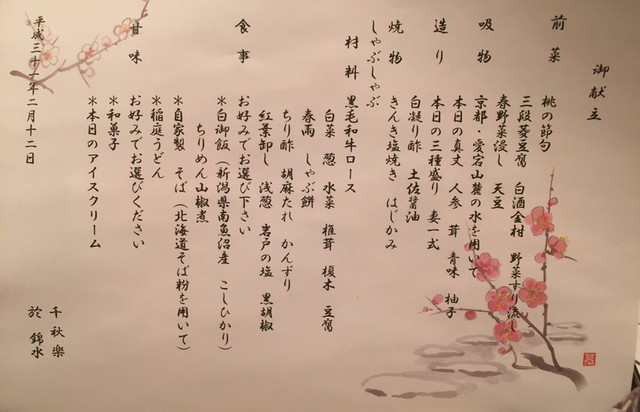 御献立
前菜
桃の節句
三段菱豆腐 白酒金柑 野菜すり流し
春野菜浸し 天豆
吸物
京都・愛宕山麓の水を用いて
本日の真丈 人参 茸 青味 柚子
造り
本日の三種盛り 妻一式
白凝り酢 土佐醤油
焼物
きんき塩焼き はじかみ
しゃぶしゃぶ
材料 黒毛和牛ロース
白菜 葱 水菜 椎茸 榎木 豆腐
春雨 しゃぶ餅
ちり酢 胡麻たれ かんずり
紅葉卸し 浅葱 岩戸の塩 黒胡椒
食事
お好みでお選び下さい
*白御飯(新潟県南魚沼産 こしひかり)
ちりめん山椒煮
*自家製 そば(北海道そば粉を用いて)
*稲庭うどん
甘味
お好みでお選びください
*和菓子
*本日のアイスクリーム
平成三十一年二月十二日
千秋楽
於 錦水